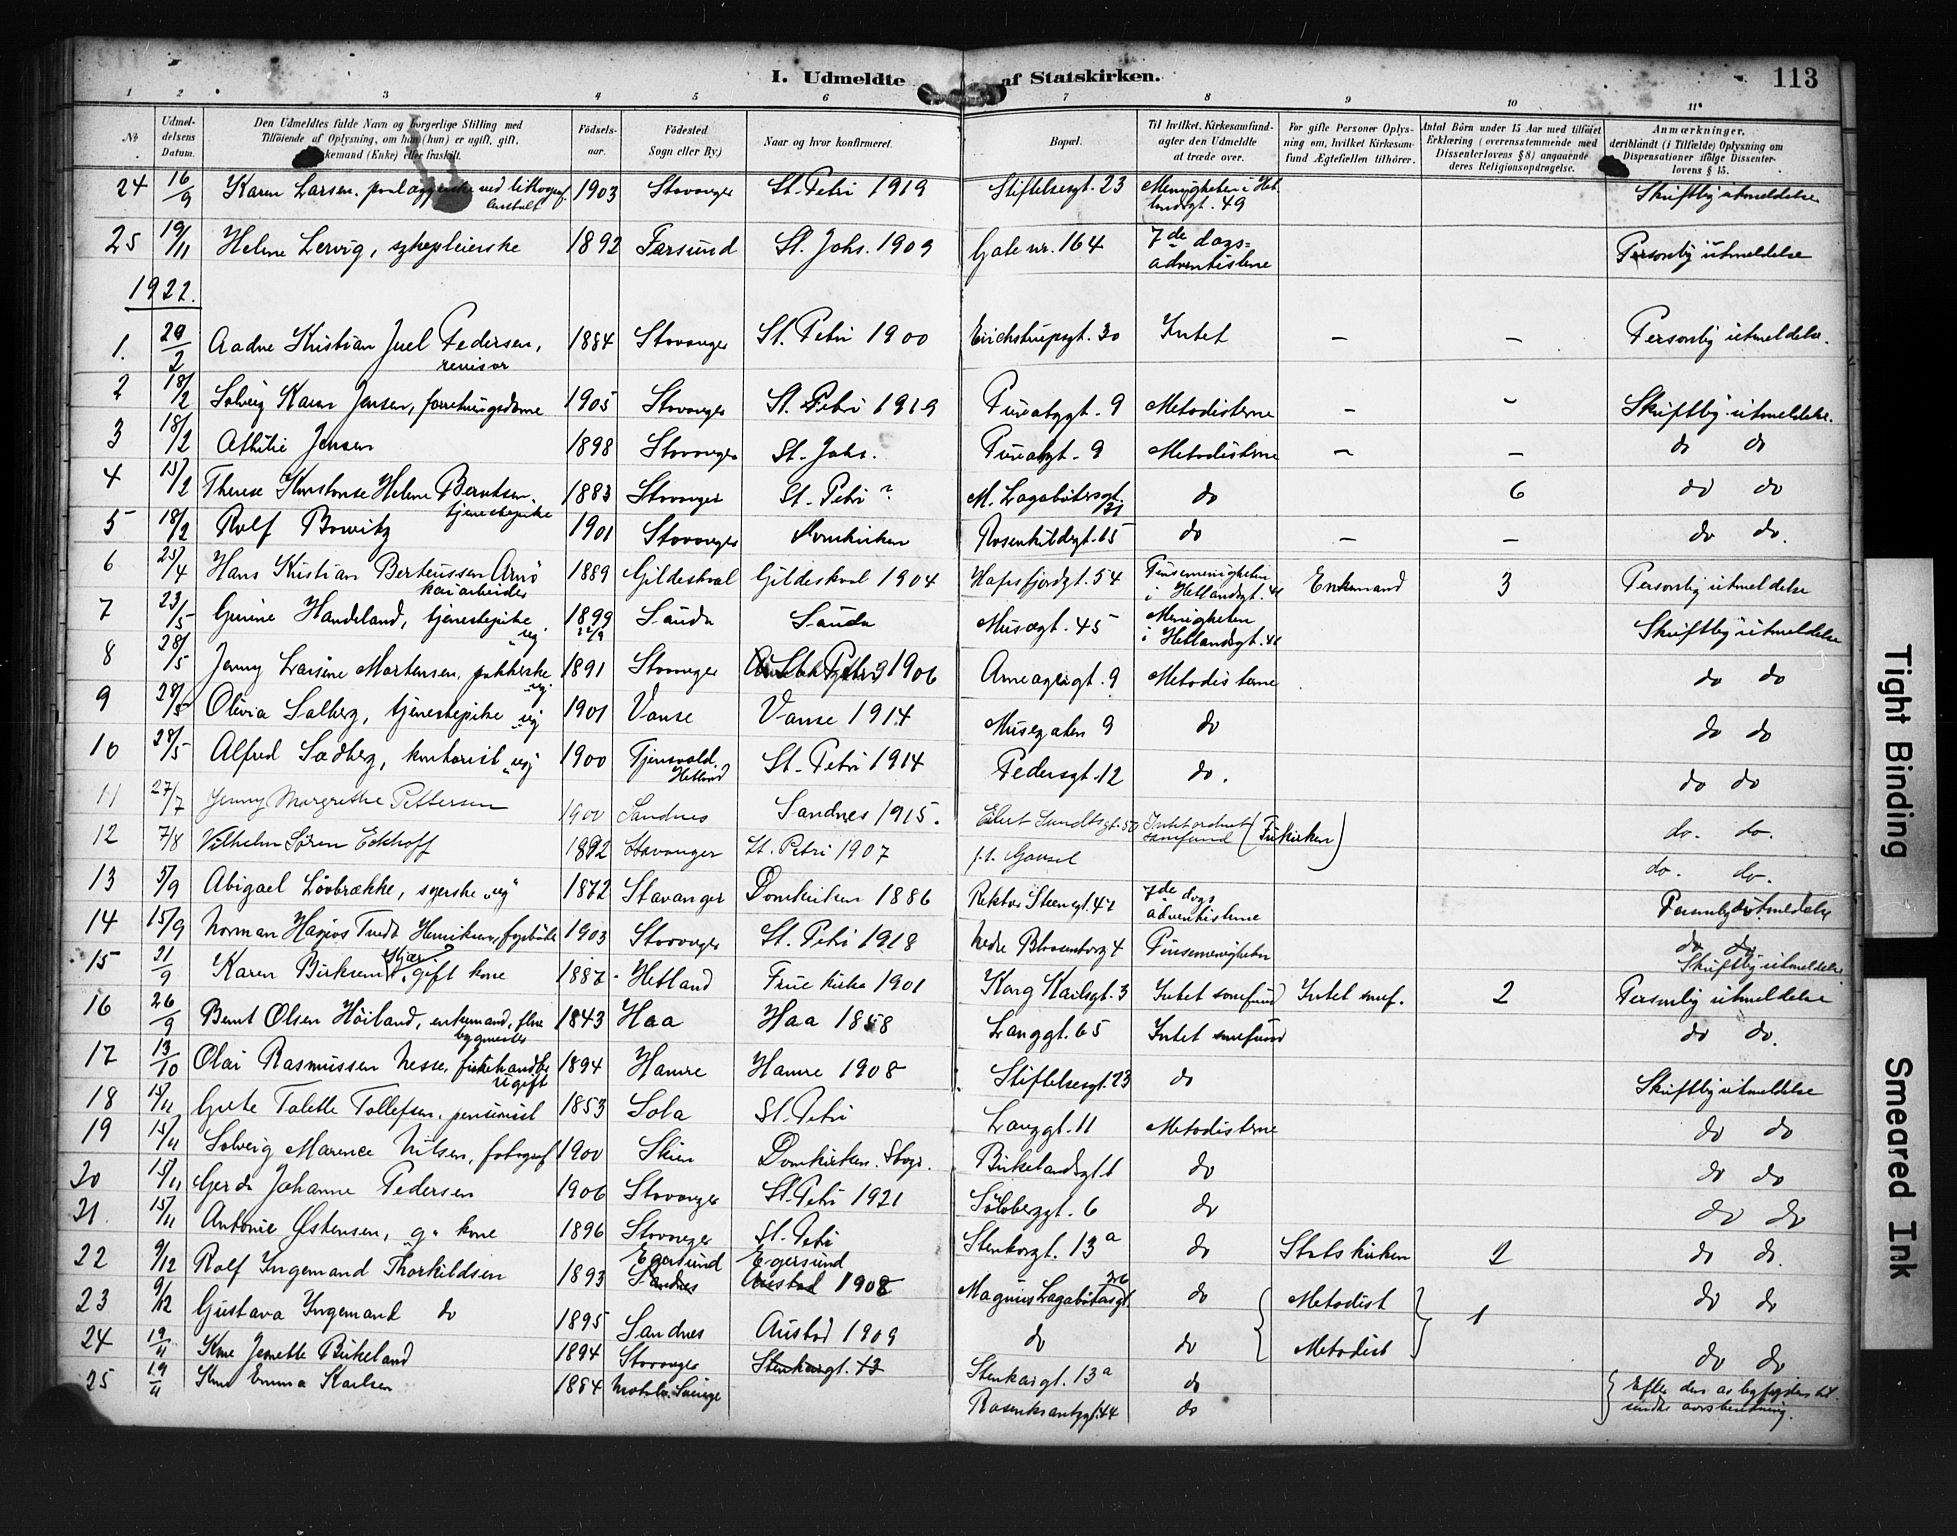 I. Udmeldte af Statskirken.
113
1 2 3 4 5 6 7 8 9 10 11
No Udmeldelsens Datum. Den Udmeldtes fulde Navn og borgerlige Stilling med Tilføiende af Oplysning, om han (hun) er ugift, gift, kemand (Enke) eller fraskilt. Fødselsaar. Fødested Sogn eller By.) Naar og hvor konfirmeret. Bopæl. Til hvilket Kirkesamfund agter den Udmeldte at træde over. For gifte Personer Oplysning om, hvilket Kirkesamfund Ægtefællen tilhører. Antal Børn under 15 Aar med tilføiet Erklæring (overensstemmende med Dissenterlovens § 8) angaaende deres Religionsopdragelse. Anmærkninger, deriblandt (i Tilfælde) Oplysning om Dispensationer ifølge Dissenterlovens § 15.
24 16/9 Karen Larsen, ved Lithograf. Anstalt 1903 Stavanger St. Petri 1919 Stiftelsesgt. 23 Menigheten i Hetlandsgt. 49 Skriftlig utmeldelse
25 19/11 Helene Lervig, sykepleierske 1892 Farsund St. Johs. 1909 Gate nr. 164 7de dags= adventistene Personlig utmeldelse
1922.
1. 20/2 Aadne Kristian Juel Pedersen, revisor 1884 Stavanger St. Petri 1900 Erichstrupsgt. 30 Intet – – Personlig utmeldelse.
2 18/2 Solveig Karen Jensen, forretningsdame 1905 Stavanger St. Petri 1919 gt. 9 Metodisterne – – Skriftlig utmeldelse.
3 18/2 Athilie Jensen 1898 Stavanger St. Johs. gt. 9 Metodisterne – – do do
4 15/2 Therese Konstanse Helene Berntsen, tjenestepike 1883 Stavanger St. Petri ? M. Lagabøtersgt. do 6 do do
5 18/2 Rolf Bowitz 1901 Stavanger Domkirken Rosenkildegt. 65 do – – do do.
6 25/4 Hans Kristian Berteussen Arnø kaiarbeider 1889 Gildeskaal Gildeskaal 1904 Hafrsfjordgt. 54 Pinsemenigheten i Hetlandsgt. 41 Enkemand 3 Personlig utmeldelse
7 23/5 Gurine Handeland, tjenestepike ug. 1899 Sauda Sauda Musægt. 45 Menigheten i Hetlandsgt. 41 Skriftlig utmeldelse
8 28/5 Jenny Larsine Mortensen, pakkerske ug. 1891 Stavanger St. Petri 1906 Arneagergt. 9 Metodisterne do do
9 28/5 Olivia Salberg, tjenestepike "ug" 1901 Vanse Vanse 1914 Musegaten 9 do do do
10 28/5 Alfred Sadberg, kontorist "ug" 1900 Tjensvold, Hetland St. Petri 1914 Pedersgt. 12 do. do do
11 27/7 Jenny Margrethe Pettersen 1900 Sandnes Sandnes 1915. Eilert Sundtsgt. 50 Intet ordnet samfund (Frikirken) do. do.
12 7/8 Vilhelm Sören Eckhoff 1892 Stavanger St. Petri 1907 p.t. Gausel do. do.
13 5/9 Abigael Lövbrække, syerske "ug" 1872 Stavanger Domkirken 1886 Rektor Steensgt. 41 7de dags adventisterne Personlig utmeldelse
14 15/9 Norman Hagios Tveds Henriksen, 1903 Stavanger St. Petri 1918 Nedre Blaasenborg 4 Pinsemenigheten do do
15 21/9 Karen Birksem gift kone 1887 Hetland Frue kirke 1901 Kong Karlsgt. 3 Intet samfund Intet smf. 2 Skriftlig utmeldelse Personlig utmeldelse
16 26/9 Bernt Olsen Höiland, enkemand, bygmester 1843 Haa Haa 1858 Langgt. 65 Intet samfund do do.
17 13/10 Olai Rasmussen Nesse, fiskehandler ugift 1894 Hamre Hamre 1908 Stiftelsesgt. 23 do Skriftlig utmeldelse
18 15/11 Grete Talette Tollefsen, pensionist 1853 Sola St. Petri Langgt. 11 Metodisterne do do
19 15/11 Solveig Marence Nilsen, fotograf 1900 Skien Domkirken. Stvgr. Birkelandsgt. 1 do do do
20 15/11 Gerda Johanne Pedersen 1906 Stavanger St. Petri 1921 Solobergt. 6 do do do
21. 15/11 Antonie Østensen, g. kone 1896 Stavanger St. Petri Stenkargt. 13a do Statskirken 2 do do.
22 9/12 Rolf Ingemand Thorkildsen 1893 Egersund Sandnes Egersund 1908 Magnus Lagabötersgt. do Metodist 1 do do
23 9/12 Gustava Ingemand do 1895 Sandnes Austad 1909 do do Metodist do do
24 19/11 Kone Jenette Birkeland 1894 Stavanger Stenkargt. 13 Stenkargt. 13a do
25 19/11 Kone Emma Karlsen 1884 Sverige Rosenkrantzgt. 44 do Efter den av til sendte aarsberetning.
Tight Binding
Smeared Ink